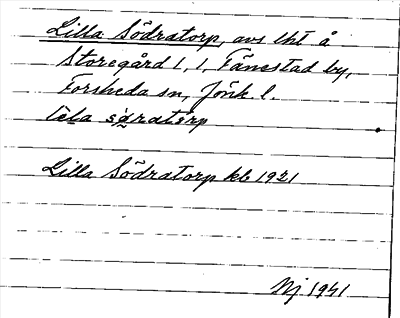 Lilla Södratorp, avs lht å
Storegård 1, 1, Tånestad by,
Forsheda sn, Jönk l.
lila sǥratårp
Lilla Södratorp kb 1921
Nj 1941